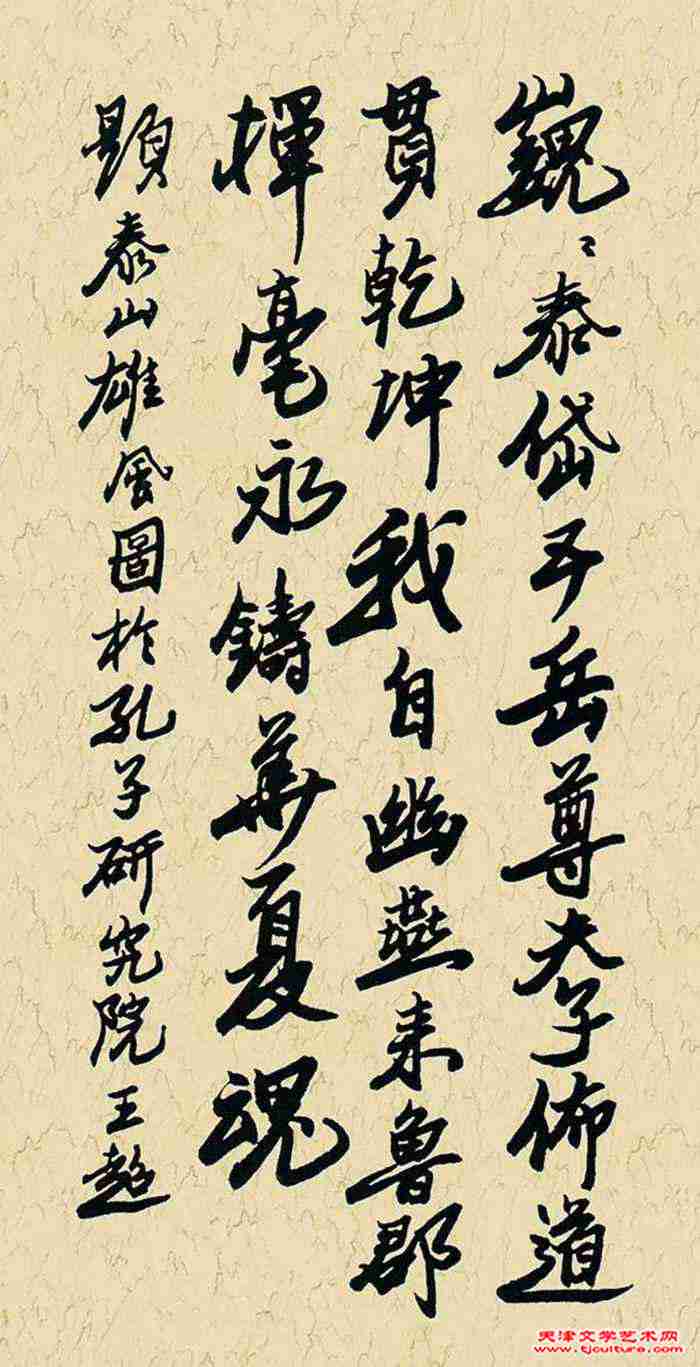 巍〻泰岱五岳尊夫子佈道
貫乾坤我自幽燕来魯郡
揮毫永鑄華夏魂
題泰山雄风圖於孔子研究院王超
天津文学艺术网
www.tjculture.com